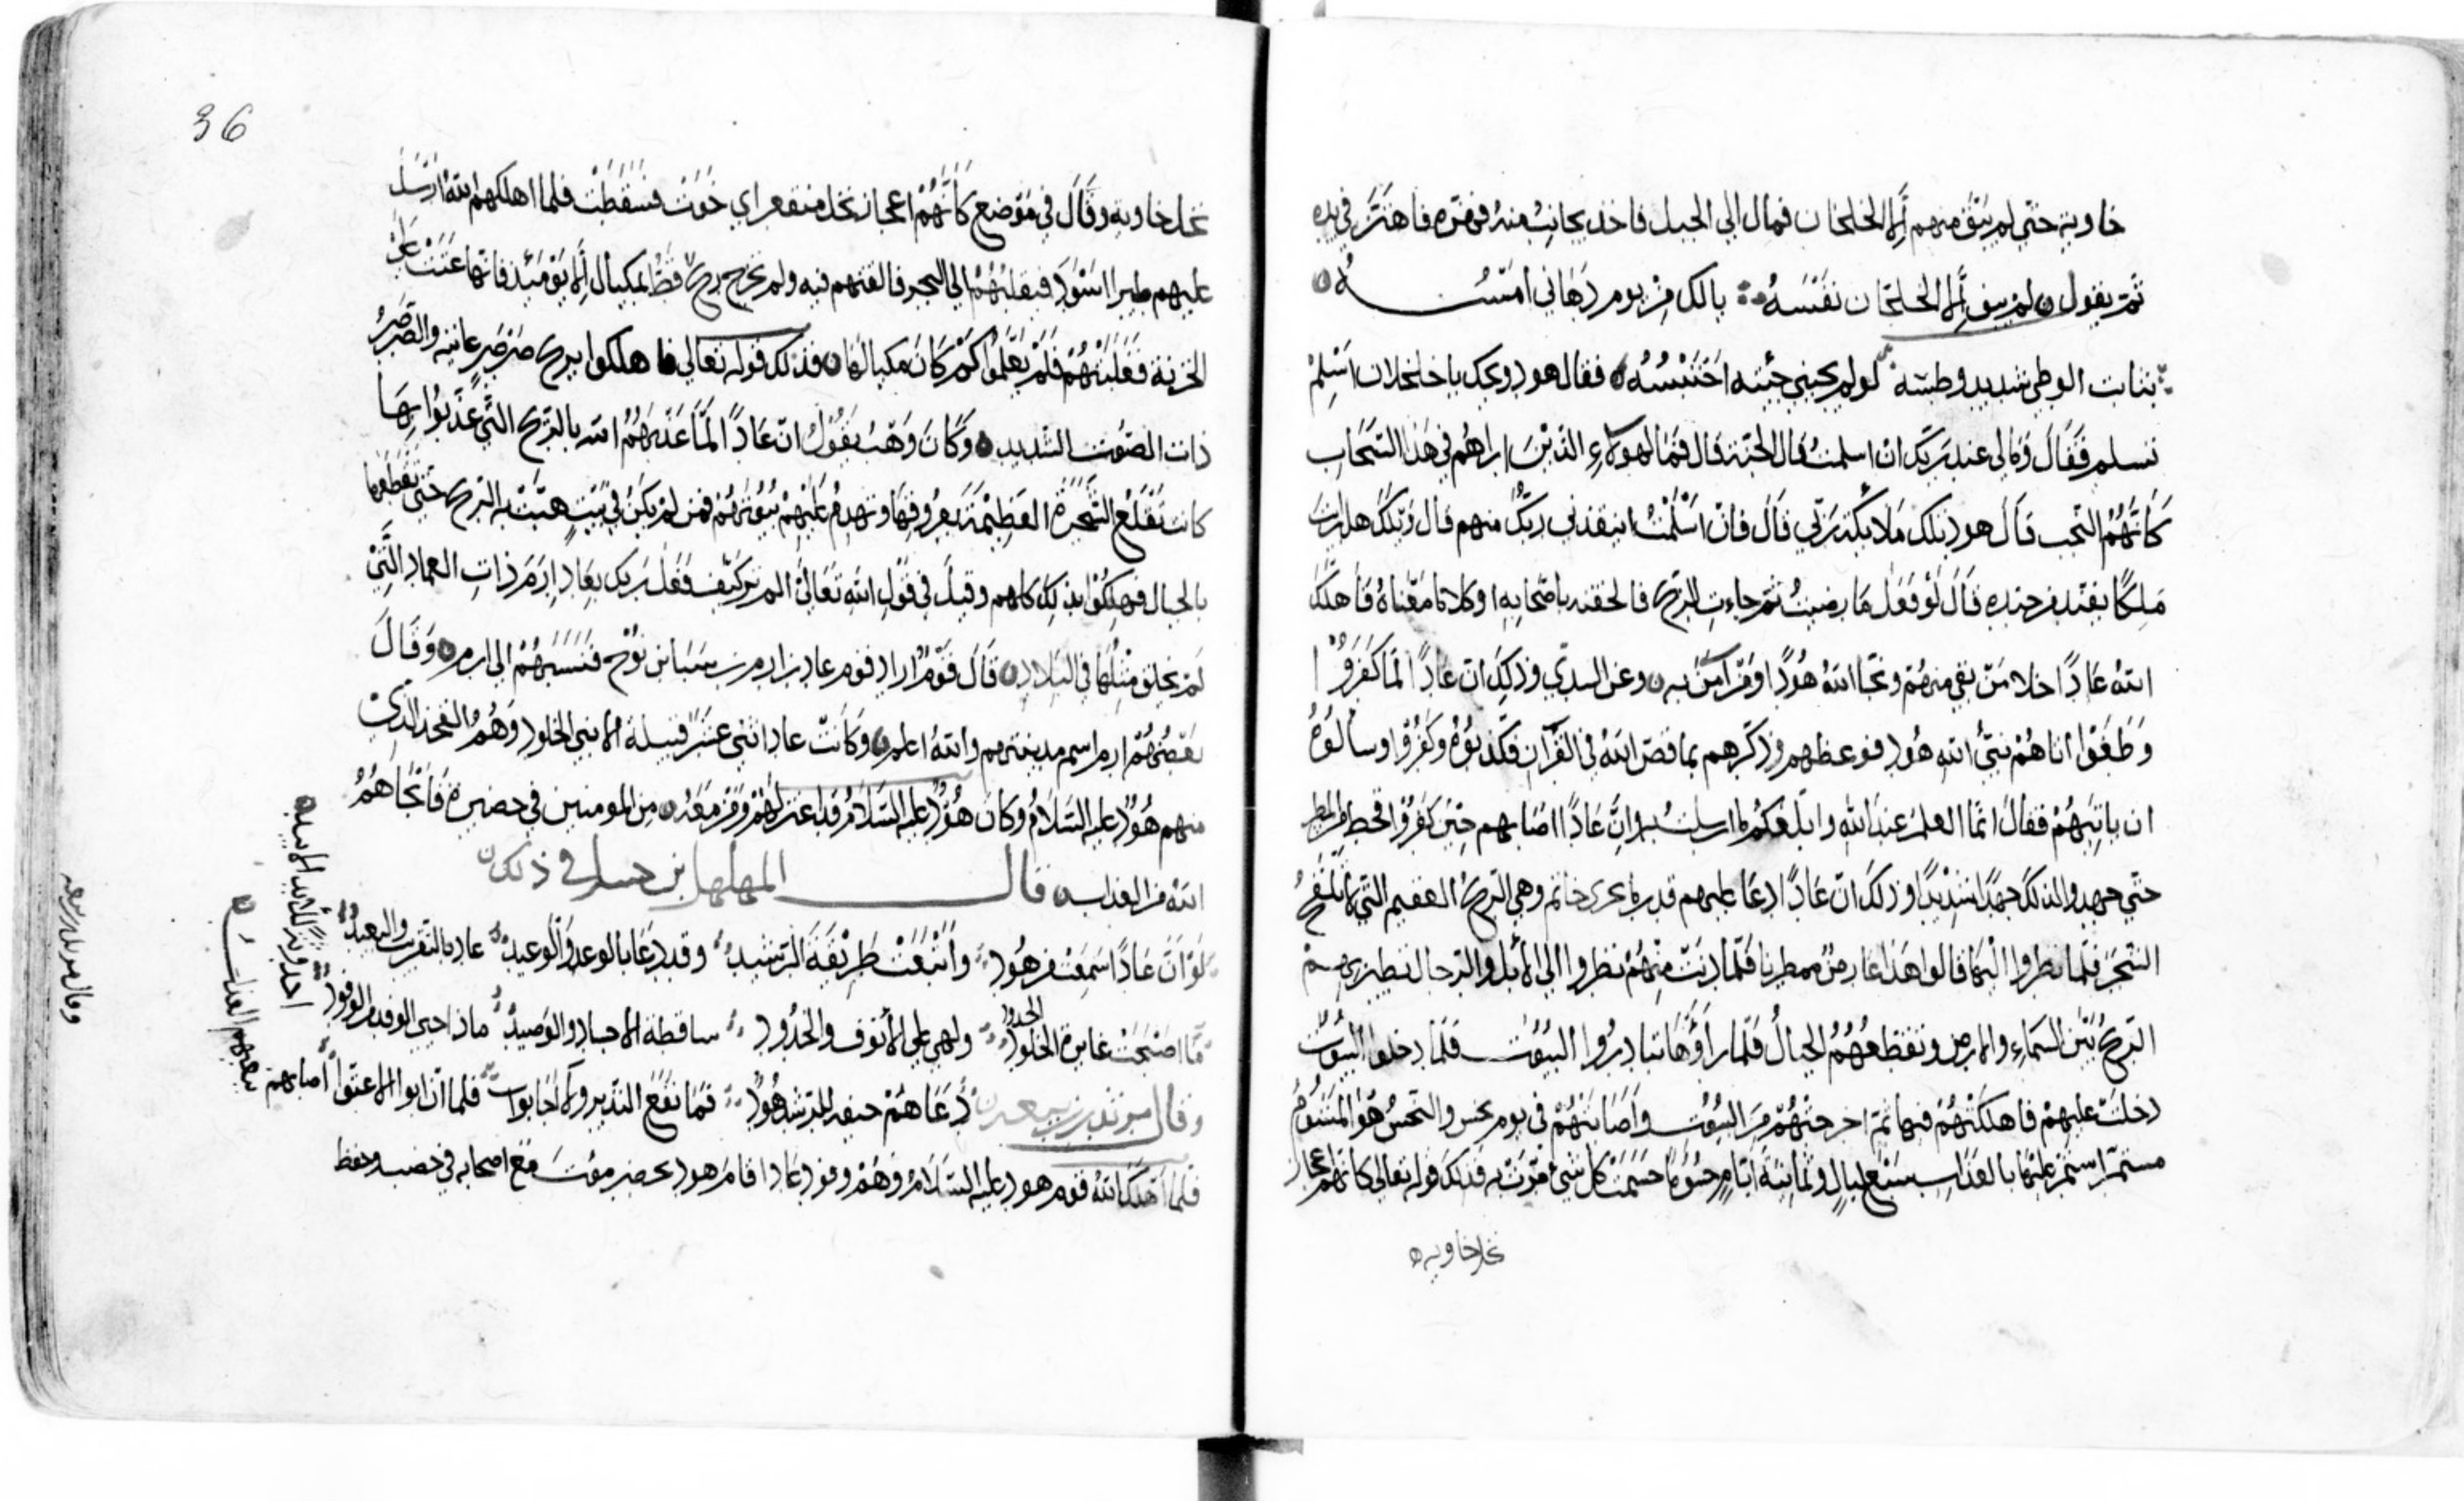 خاوية حتى لم يبق منهم إلا الخلجان فمال الي الجبل فاخذ بجانب منه فهزه فاهتز في يده
ثم يقول ه لم يبق إلا الخلجان نفسه ∴ يالك من يوم دهاني امسه ه
ثابت الوطي شديد وطسه لو لم يجيني جيته اجتسسه ه فقال هود ويحك يا خلخلان اسلم
تسلم فقال ومالي عند ربك ان اسلمت قال الجنة قال فما لهولاء الذين اراهم في هذا السحاب
كانهم النجب قال هود تلك ملائكة ربي قال فان اسلمت اينقذني ربك منهم قال ويلك هل رايت
ملكا يقتد من جنده قال لو فعل ما رضيت ثم جاءت الريح فالحقته باصحابه او كلاما معناه فاهلك
الله عادا خلا من بقي منهم ونجا الله هودا ومن آمن به ه وعن السدي وذلك ان عادا لما كفروا
وطغوا اتاهم نبي الله هود فوعظهم وذكرهم بما قص الله في القرآن فكذبوه وكفروا وسالوه
ان ياتيهم فقال انما العلم عند الله وابلغكم ما ارسلت به وان عادا اصابهم حين كفروا قحط المطر
حتي جهدوا لذلك جهدا شديدا وذلك ان عادا دعا عليهم قدر ما يجري خاتم وهي الريح العقيم التي لا تلقح
الشجر فلما نظروا اليها قالوا هذا عارض ممطرنا فلما دنت منهم نظروا الي الابل والرحال تطير بهم
الريح بين السماء والارض وتقطعهم الجبال فلما راوها تبادروا البيوت فلما دخلوا البيوت
دخلت عليهم فاهلكتهم فيها ثم اخرجتهم من البيوت واصابتهم في يوم نحس والنحس هو المشوم
مستمر استمر عليها بالعذاب سبع ليال وثمانية ايام حسوما حسمت كل شيء مرت به فذلك قوله تعالي كانهم اعجاز
نخل خاويه ه
36
نخل خاوية وقال في موضع كانهم اعجاز نخل منقعر اي خوت فسقطت فلما اهلكهم الله ارسل
عليهم طيرا اسود فنقلتهم الي البحر فالقتهم فيه ولم تخرج ريح قط الا بمكيال إلا يومئذ فانها عتت علي
الخزنة فغلبتهم فلم يعلموا كم كان مكيالها ه فذلك قوله تعالي فاهلكوا بريح صرصر عاتية والصرصر
ذات الصوت الشديد ه وكان وهب يقول ان عادا لما عذبهم الله بالريح التي عذبوا بها
كانت تقلع الشجرة العظيمة بعروقها وتهدم عليهم بيوتهم فمن لم يكن في بيت هبت به الريح حتي تقطعه
بالجبال فهلكوا بذلك كلهم وقيل في قول الله تعالي الم تر كيف فعل ربك بعاد ارم ذات العماد التي
لم يخلق مثلها في البلاد ه قال قوم اراد قوم عاد بن ارم بن سبا بن نوح فنسبهم الي ارم ه وقال
بعضهم ارم اسم مدينتهم والله اعلم ه وكانت عاد اثني عشر قبيلة الابني الخلود وهم الفخذ الذي
منهم هود عليه السلام وكان هود عليه السلام قد اعتزلهم ومن معه ه من المومنين في حضيرة فانجاهم
الله من العذاب ه قال المهلهل بن في ذلك ه
لو ان عادا سمعت من هود واتبعت طريقة الرشيد وقد دعا بالوعد والوعيد عاد بالتقريب والبعيد
ما اصبحت عاثرة الجدود الخلود ولهي علي الانوف والخدود ساقطة الاجساد والوصيد ماذا جني الوفد من الوفود
وقال مرثد بن سعد ه دعاهم حيفه للرشد هود فما نفع النذير ولا اجابوا فلما ان ابوا الا عتوا اصابهم
فلما اهلك الله قوم هود عليه السلام وهم وفود عاد اقام هود بحضرموت مع اصحابه في خصب وحفظ
ببغيهم العذاب ه